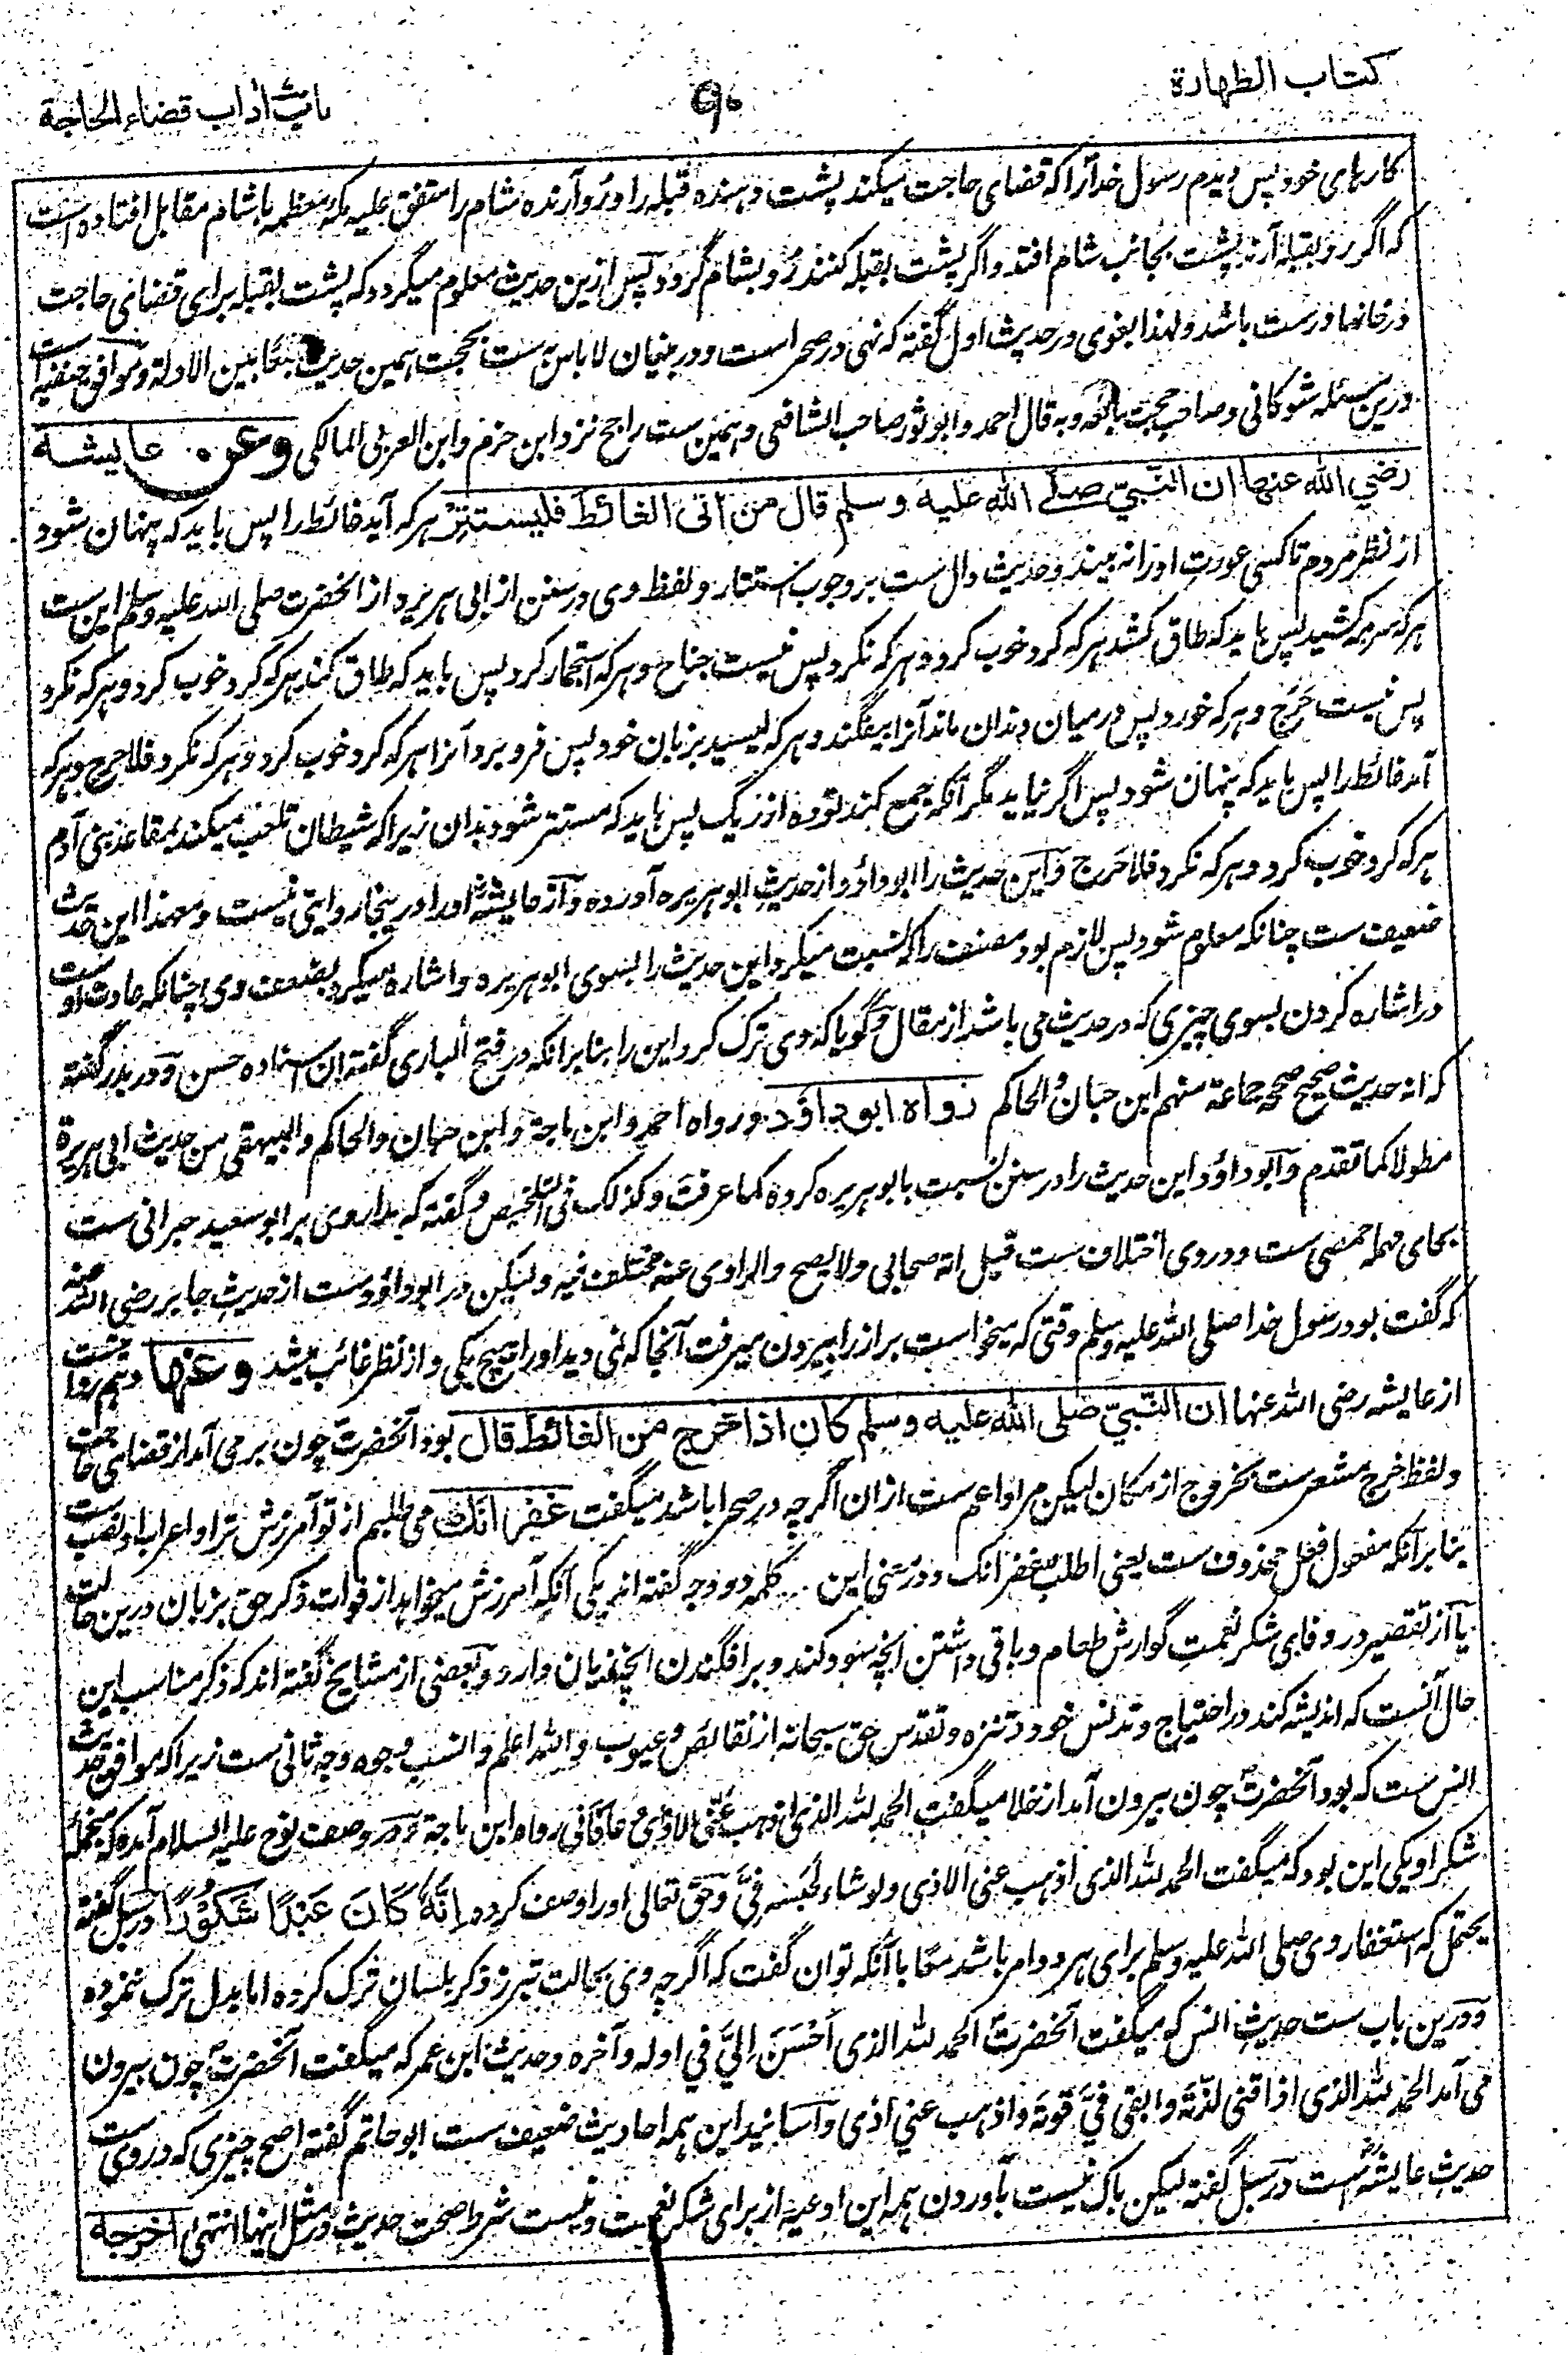 کتاب الطهارة
۹۰
باب آداب قضاء الحاجة
کارهای خود پس دیدم رسول خدا را که قضای حاجت میکند پشت دهنده قبله را و رو آرنده شام را متفق علیه مکه معظمه با شام مقابل افتاده است
که اگر رو بقبله آرند پشت بجانب شام افتد و اگر پشت بقبله کنند رو بشام گردد پس ازین حدیث معلوم میگردد که پشت بقبله برای قضای حاجت
در خانها درست باشد ولهذا بغوی در حدیث اول گفته که نهی در صحراست و در بنیان لا باس به ست بحجت همین حدیث جمعا بین الادلة و موافق حنفیه است
درین مسئله شوکانی و صاحب حجت بالغه و به قال احمد و ابو ثور صاحب الشافعی و همین ست راجح نزد ابن حزم و ابن العربی المالکی وعن عایشة
رضي الله عنها ان النّبيّ صلے الله علیه وسلم قال من اتی الغائط فلیستتر هر که آید غائط را پس باید که پنهان شود
از نظر مردم تا کسی عورت او را نه بیند و حدیث دال ست بر وجوب استتار و لفظ وی در سنن از ابی هریره از آنحضرت صلی الله علیه وسلم این ست
هر که سرمه کشید پس باید که طاق کشد هر که کرد خوب کرد و هر که نکرد پس نیست جناح و هر که استجمار کرد پس باید که طاق کند هر که کرد خوب کرد و هر که نکرد
پس نیست حَرَج و هر که خورد پس در میان دندان ماند آنرا بیفگند و هر که لیسید بزبان خود پس فرو برد آنرا هر که کرد خوب کرد و هر که نکرد فلا حرج و هر که
آمد غائط را پس باید که پنهان شود پس اگر نیابد مگر آنکه جمع کند توده از ریگ پس باید که مستتر شود بدان زیرا که شیطان تلعب میکند بمقاعد بنی آدم
هر که کرد خوب کرد و هر که نکرد فلا حَرَج و این حدیث را ابو داؤد از حدیث ابو هریره آورده و از عایشه او را درینجا روایتی نیست و معهذا این حدیث
ضعیف ست چنانکه معلوم شود پس لازم بود مصنف را که نسبت میکرد این حدیث را بسوی ابو هریره و اشاره میکرد بضعف وی چنانکه عادت اوست
در اشاره کردن بسوی چیزی که در حدیث می باشد از مقال و گویا که وی ترک کرد این را بنابر آنکه در فتح الباری گفته ان اسناده حسن و در بدر گفته
که انه حدیث صحیح صححه جماعة منهم ابن حبان و الحاکم رواه ابو داؤد و رواه احمد و ابن ماجة و ابن حبان والحاکم والبیهقی من حدیث ابی هریرة
مطولا کما تقدم و ابو داؤد این حدیث را در سنن نسبت بابو هریره کرده کما عرفت و کذلک فی التلخیص و گفته که مدار وی بر ابو سعید حبرانی ست
بحای مهمله حمصی ست و در وی اختلاف ست قیل انه صحابی ولا یصح والراوی عنه مختلف فیه ولیکن در ابو داؤد ست از حدیث جابر رضی الله عنه
که گفت بود رسول خدا صلی الله علیه وسلم وقتی که میخواست براز را بیرون میرفت آنجا که نمی دید او را هیچ یکی و از نظر غائب میشد وعنها و هم روایت ست
از عایشه رضی الله عنها ان النّبيّ صلی الله علیه وسلم کان اذا خرج من الغائط قال بود آنحضرت چون بر می آمد از قضای حاجت
و لفظ خرج مشعرست بخروج از مکان لیکن مراد اعم ست ازان اگرچه در صحرا باشد میگفت غفرانك می طلبم از تو آمرزش ترا و اعراب او نصب ست
بنابر آنکه مفعول فعل محذوف ست یعنی اطلب غفرانک و در معنی این کلمه دو وجه گفته اند یکی آنکه آمرزش میخواهد از فوات ذکر حق بزبان درین حالت
یا از تقصیر در وفای شکر نعمت گوارش طعام و باقی داشتن انچه سود کند و بر افگندن انچه زیان دارد و بعضی از مشایخ گفته اند که ذکر مناسب این
حال آنست که اندیشه کند در احتیاج و تدنس خود و تنزه و تقدس حق سبحانه از نقائص و عیوب والله اعلم و انسب وجوه وجه ثانی ست زیرا که موافق حدیث
انس ست که بود آنحضرت چون بیرون آمد از خلا میگفت الحمد لله الذی اذهب عنّی الاذی و عافانی رواه ابن ماجة و در وصف نوح علیه السلام آمده که منجمله
شکر او یکی این بود که میگفت الحمد لله الذی اذهب عنی الاذی ولو شاء لحبسه فیّ و حق تعالی او را وصف کرده اِنَّهٗ کَانَ عَبْدًا شَکُوْرًا و در سبل گفته
یحتمل که استغفار وی صلی الله علیه وسلم برای هر دو امر باشد معا با آنکه توان گفت که اگرچه وی بحالت تبرز ذکر بلسان ترک کرده اما بدل ترک ننموده
و درین باب ست حدیث انس که میگفت آنحضرت الحمد لله الذی اَحْسَنَ اِلیَّ فی اوله و آخره و حدیث ابن عمر که میگفت آنحضرت چون بیرون
می آمد الحمد لله الذی اذاقنی لذّتَه و ابقی فیَّ قوتَه و اذهب عني اذی و آسانید این همه احادیث ضعیف ست ابو حاتم گفته اصح چیزی که در وی ست
حدیث عایشه ست در سبل گفته لیکن باک نیست بآوردن همه این ادعیه از برای شکر نعمت و نیست شرط صحت حدیث در مثل اینها انتهی اخرجه